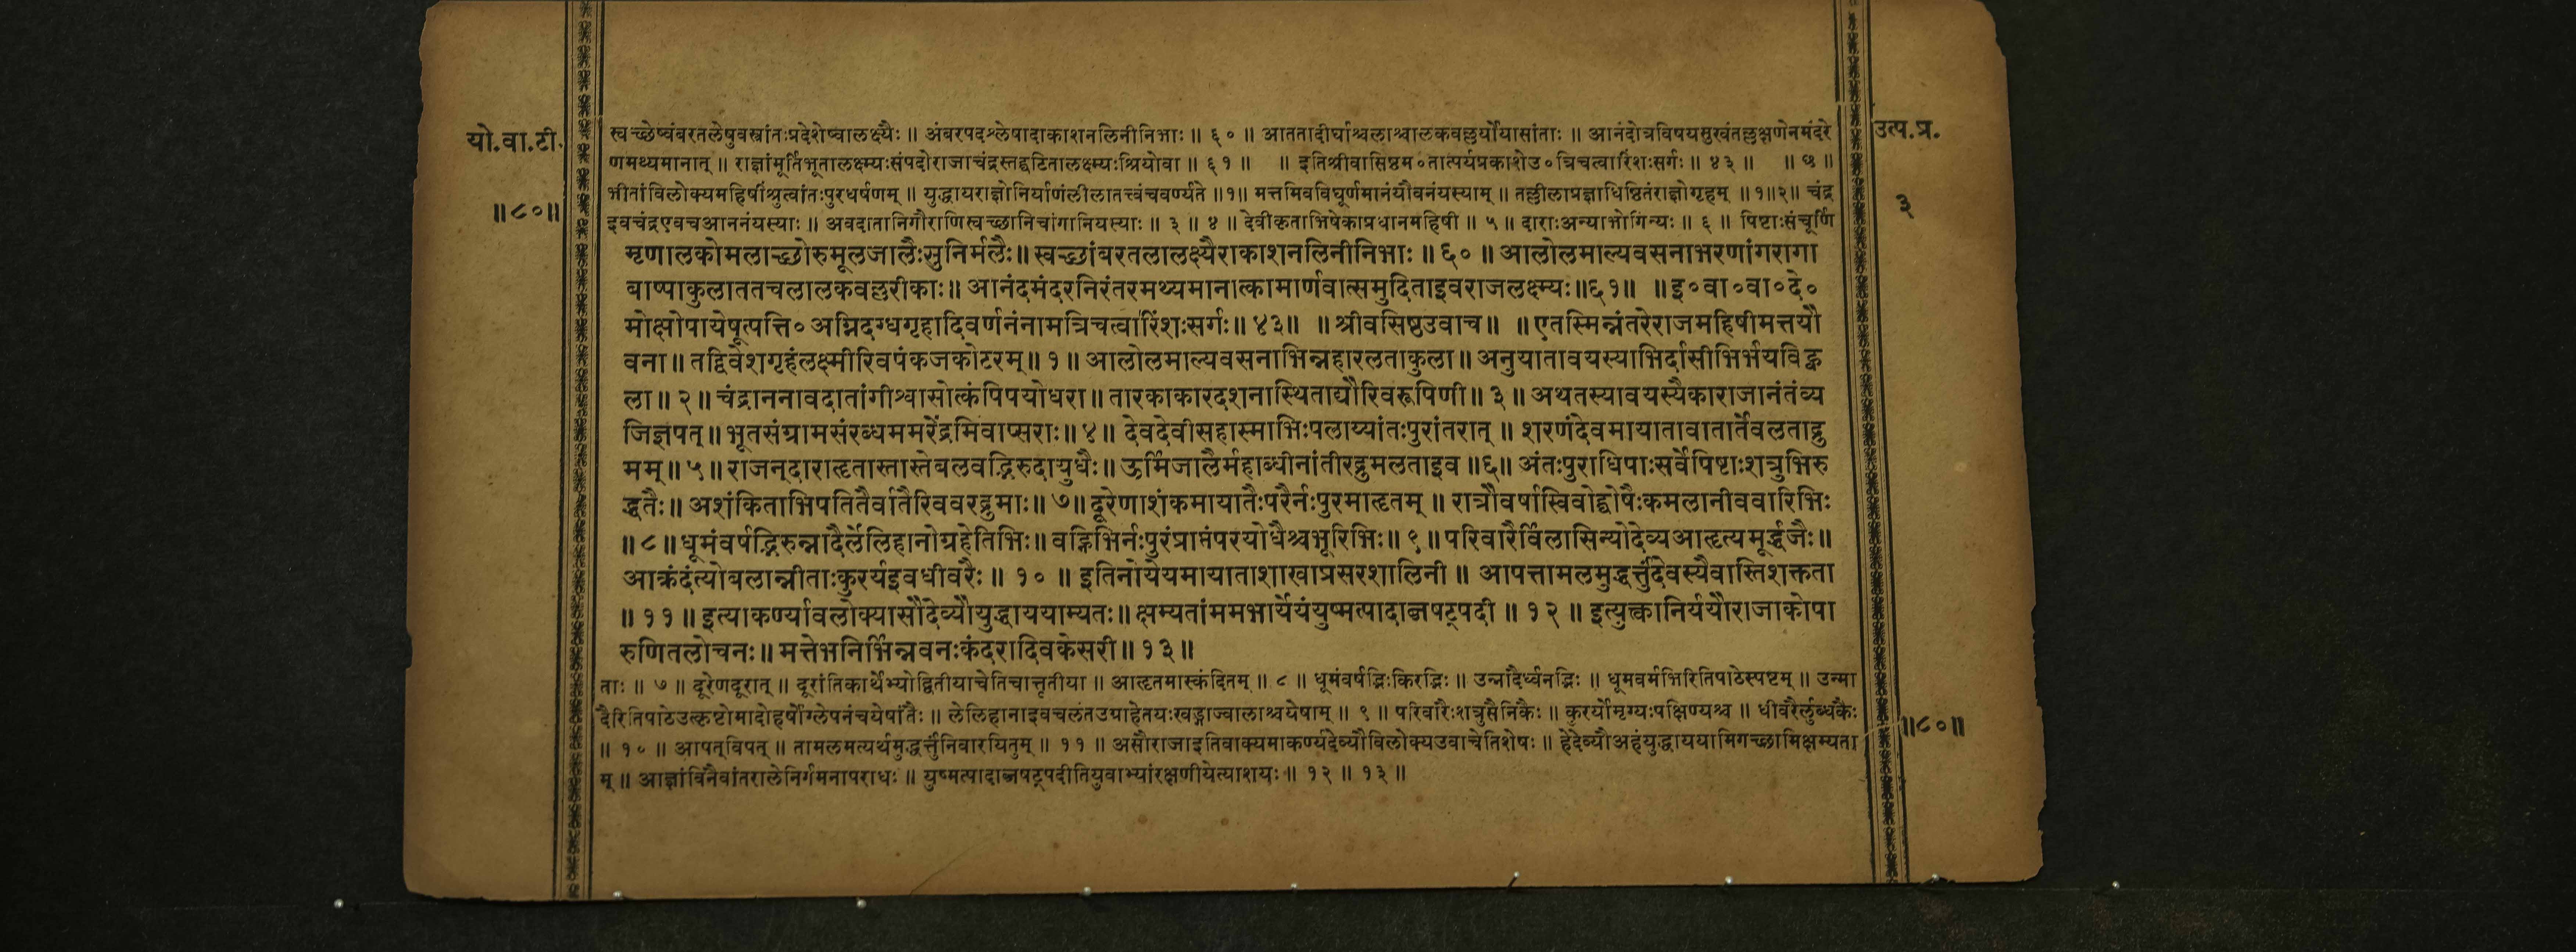 यो.वा.टी.
॥८०॥
उत्प.प्र.
३
स्वच्छेष्वंबरतलेषुवस्त्रांतःप्रदेशेष्वालक्ष्यैः ॥ अंबरपदश्लेषादाकाशनलिनीनिभाः ॥ ६० ॥ आततादीर्घाश्चलाश्चालकवल्लर्योयासांताः ॥ आनंदोत्रविषयसुखंतल्लक्षणेनमंदरे
णमथ्यमानात् ॥ राज्ञांमूर्तिभूतालक्ष्म्यःसंपदोराजाचंद्रस्तद्घटितालक्ष्म्यःश्रियोवा ॥ ६१ ॥ ॥ इतिश्रीवासिष्ठम०तात्पर्यप्रकाशेउ०त्रिचत्वारिंशःसर्गः ॥ ४३ ॥ ॥ ७ ॥
भीतांविलोक्यमहिषींश्रुत्वांतःपुरधर्षणम् ॥ युद्धायराज्ञोनिर्याणंलीलातत्त्वंचवर्ण्यते ॥१॥ मत्तमिवविघूर्णमानंयौवनंयस्याम् ॥ तल्लीलाप्रज्ञाधिष्ठितंराज्ञोगृहम् ॥ १॥२॥ चंद्र
इवचंद्रएवचआननंयस्याः ॥ अवदातानिगौराणिस्वच्छानिचांगानियस्याः ॥ ३ ॥ ४ ॥ देवीकृताभिषेकाप्रधानमहिषी ॥ ५ ॥ दाराःअन्याभोगिन्यः ॥ ६ ॥ पिष्टाःसंचूर्णि
मृणालकोमलाच्छोरुमूलजालैःसुनिर्मलैः॥ स्वच्छांबरतलालक्ष्यैराकाशनलिनीनिभाः ॥ ६० ॥ आलोलमाल्यवसनाभरणांगरागा
बाष्पाकुलाततचलालकवल्लरीकाः॥ आनंदमंदरनिरंतरमथ्यमानात्कामार्णवात्समुदिताइवराजलक्ष्म्यः॥६१॥ ॥इ०वा०वा०दे०
मोक्षोपायेषूत्पत्ति० अग्निदग्धगृहादिवर्णनंनामत्रिचत्वारिंशःसर्गः॥ ४३॥ ॥श्रीवसिष्ठउवाच॥ ॥एतस्मिन्नंतरेराजमहिषीमत्तयौ
वना॥ तद्विवेशगृहंलक्ष्मीरिवपंकजकोटरम्॥ १ ॥ आलोलमाल्यवसनाभिन्नहारलताकुला॥ अनुयातावयस्याभिर्दासीभिर्भयविह्व
ला ॥ २ ॥ चंद्राननावदातांगीश्वासोत्कंपिपयोधरा॥ तारकाकारदशनास्थिताद्यौरिवरूपिणी॥ ३ ॥ अथतस्यावयस्यैकाराजानंतंव्य
जिज्ञपत्॥ भूतसंग्रामसंरब्धममरेंद्रमिवाप्सराः॥४॥ देवदेवीसहास्माभिःपलाय्यांतःपुरांतरात् ॥ शरणंदेवमायातावातार्तेवलताद्रु
मम्॥ ५ ॥ राजन्‌दाराहृतास्तास्तेबलवद्भिरुदायुधैः॥ ऊर्मिजालैर्महाब्धीनांतीरद्रुमलताइव ॥६॥ अंतःपुराधिपाःसर्वेपिष्टाःशत्रुभिरु
द्धतैः॥ अशंकिताभिपतितैर्वातैरिववरद्रुमाः॥ ७॥ दूरेणाशंकमायातैःपरैर्नःपुरमाहृतम् ॥ रात्रौवर्षास्विवोद्घोषैःकमलानीववारिभिः
॥ ८ ॥ धूमंवर्षद्भिरुन्नादैर्लेलिहानोग्रहेतिभिः॥ वह्निभिर्नःपुरंप्राप्तंपरयोधैश्चभूरिभिः॥ ९ ॥ परिवारैर्विलासिन्योदेव्यआहृत्यमूर्द्धजैः॥
आक्रंदंत्योबलान्नीताःकुरर्यइवधीवरैः ॥ १० ॥ इतिनोयेयमायाताशाखाप्रसरशालिनी ॥ आपत्तामलमुद्धर्त्तुंदेवस्यैवास्तिशक्तता
॥ ११ ॥ इत्याकर्ण्यावलोक्यासौदेव्यौयुद्धाययाम्यतः॥ क्षम्यतांममभार्येयंयुष्मत्पादाब्जषट्पदी ॥ १२ ॥ इत्युक्त्वानिर्ययौराजाकोपा
रुणितलोचनः॥ मत्तेभनिर्भिन्नवनःकंदरादिवकेसरी॥ १३॥
ताः ॥ ७ ॥ दूरेणदूरात् ॥ दूरांतिकार्थेभ्योद्वितीयाचेतिचात्तृतीया ॥ आहृतमास्कंदितम् ॥ ८ ॥ धूमंवर्षद्भिःकिरद्भिः ॥ उन्नादैर्ध्वनद्भिः ॥ धूमवर्मभिरितिपाठेस्पष्टम् ॥ उन्मा
दैरितिपाठेउत्कृष्टोमादोहर्षोग्लेपनंचयेषांतैः ॥ लेलिहानाइवचलंतउग्राहेतयःखड्गाज्वालाश्चयेषाम् ॥ ९ ॥ परिवारैःशत्रुसैनिकैः ॥ कुरर्योमृग्यःपक्षिण्यश्च ॥ धीवरैर्लुब्धकैः
॥ १० ॥ आपत्‌विपत् ॥ तामलमत्यर्थमुद्धर्त्तुंनिवारयितुम् ॥ ११ ॥ असौराजाइतिवाक्यमाकर्ण्यदेव्यौविलोक्यउवाचेतिशेषः ॥ हेदेव्यौअहंयुद्धाययामिगच्छामिक्षम्यता
म् ॥ आज्ञांविनैवांतरालेनिर्गमनापराधः ॥ युष्मत्पादाब्जषट्पदीतियुवाभ्यांरक्षणीयेत्याशयः ॥ १२ ॥ १३ ॥
॥८०॥